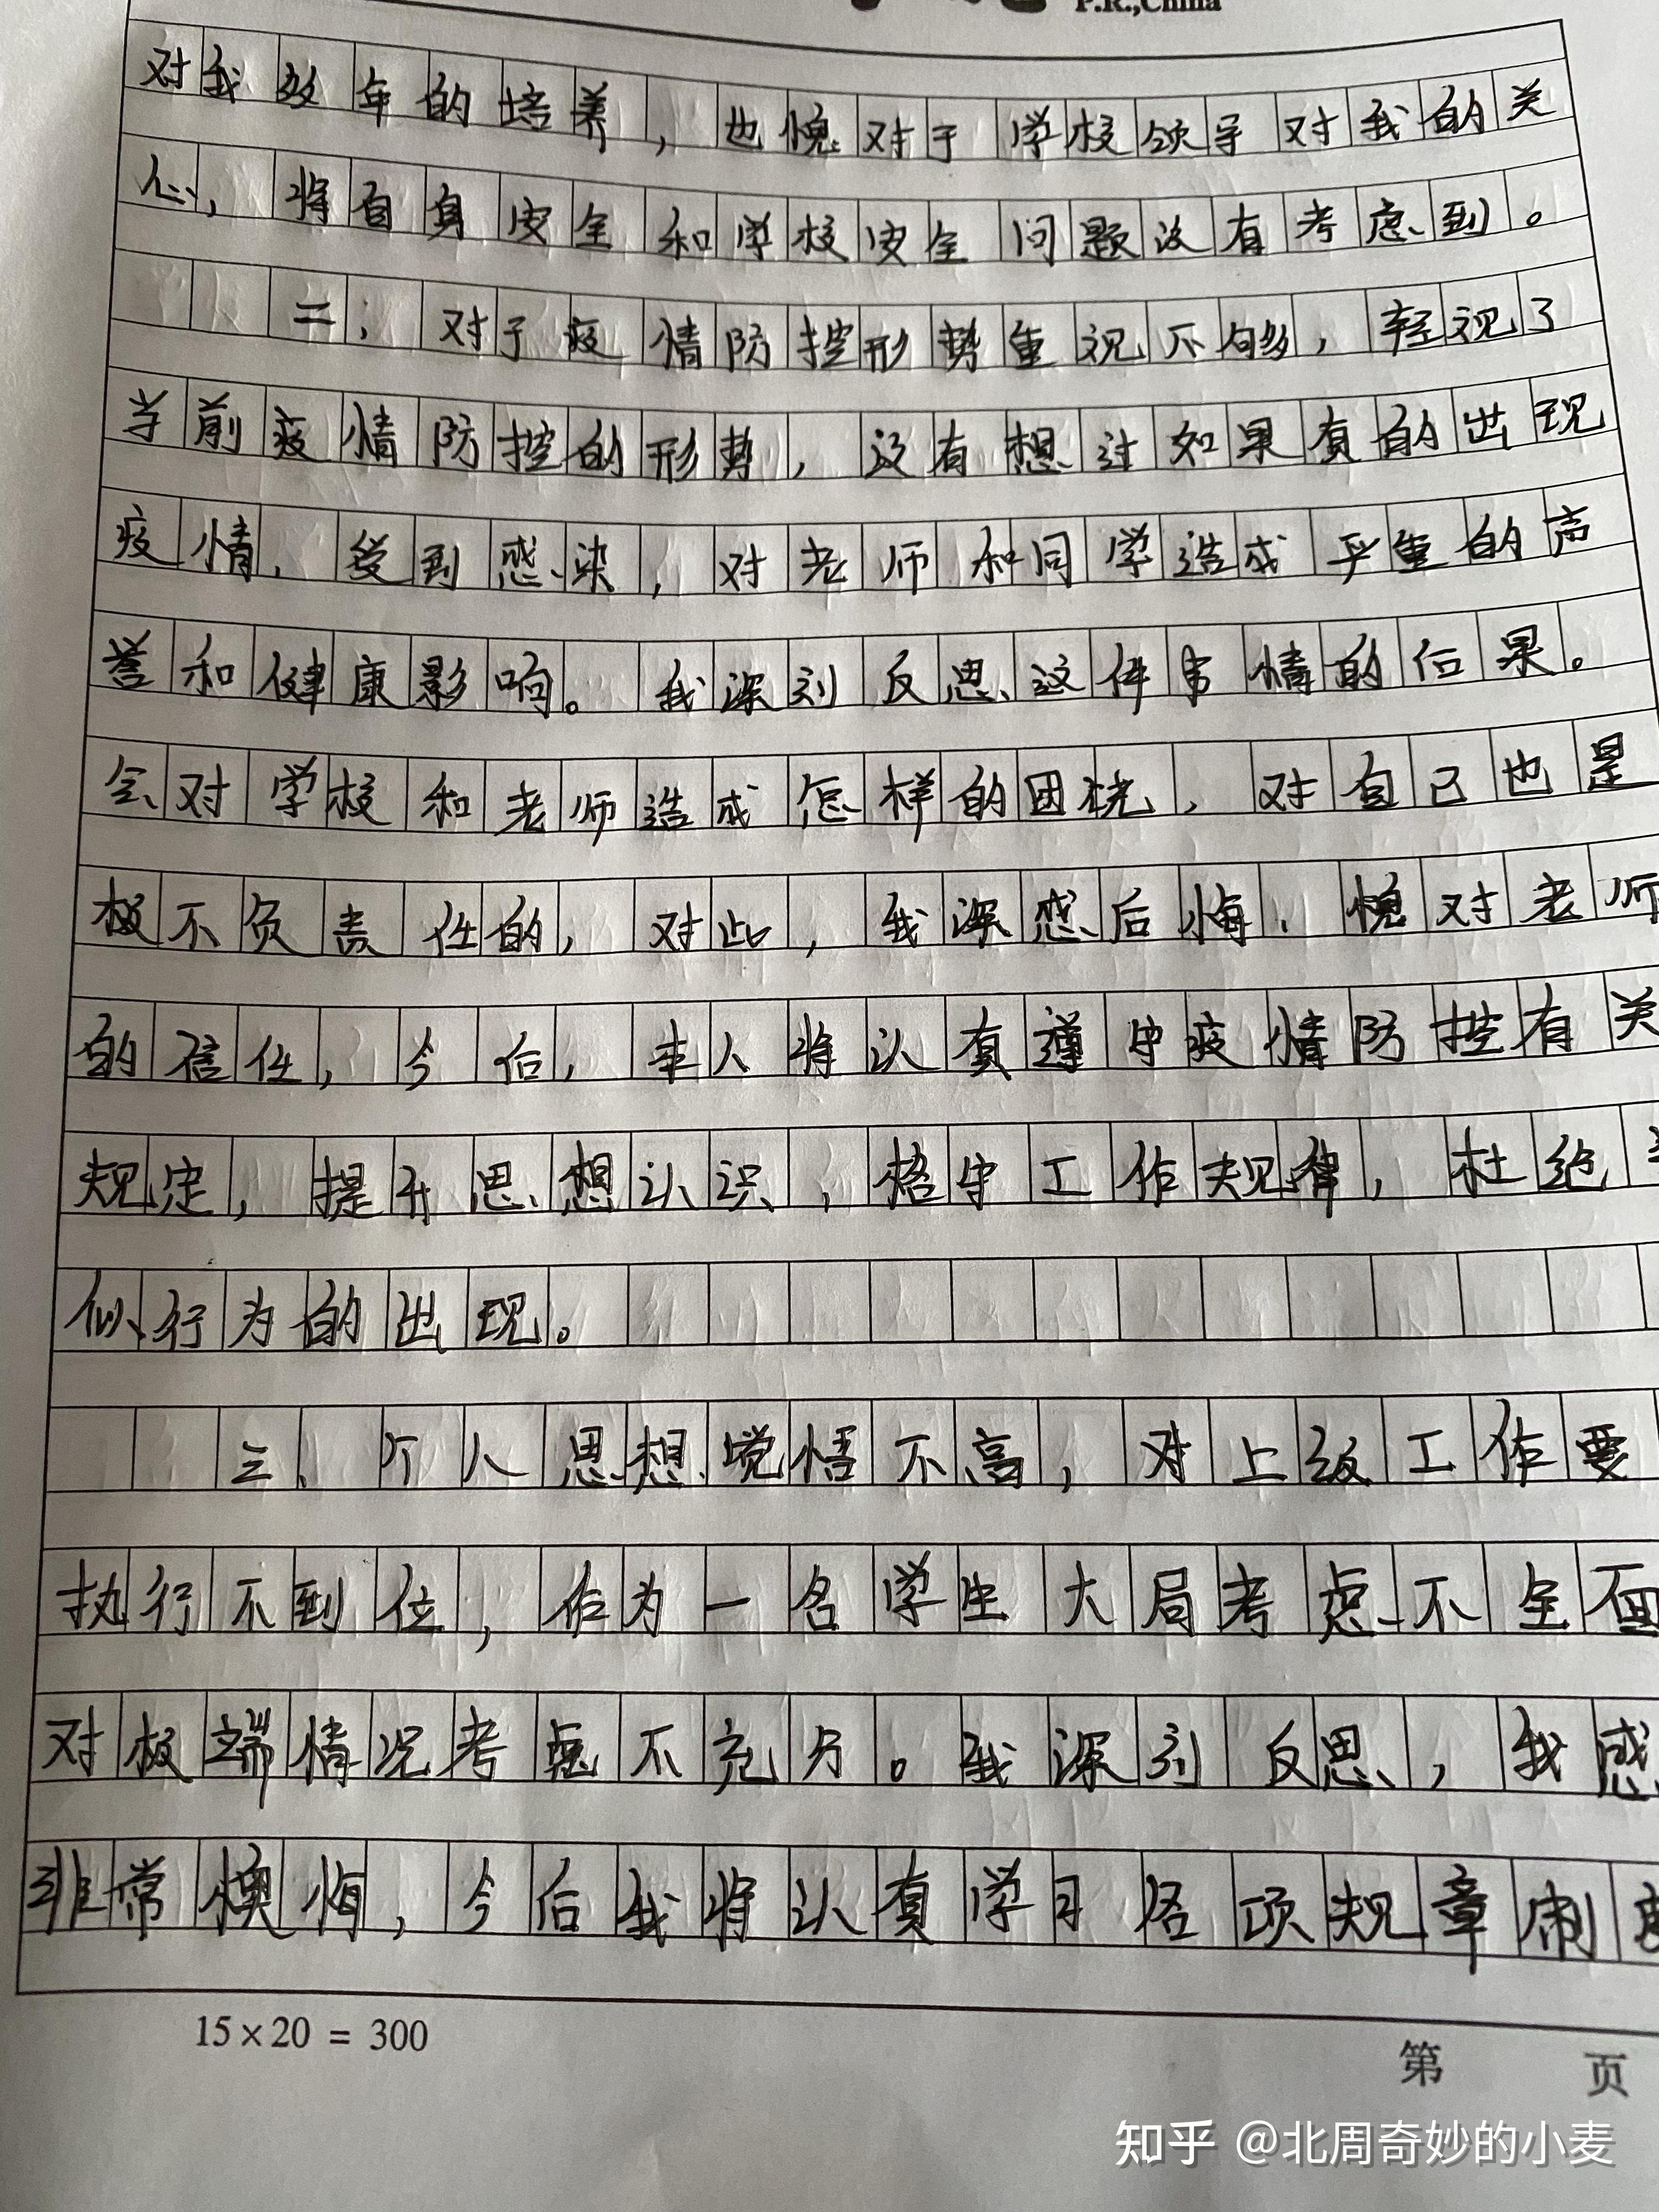 P.R.,China
对我数年的培养，也愧对于学校领导对我的关
心，将自身安全和学校安全问题没有考虑到。
二，对于疫情防控形势重视不够，轻视了
当前疫情防控的形势，没有想过如果真的出现
疫情，受到感染，对老师和同学造成严重的声
誉和健康影响。我深刻反思这件事情的后果。
会对学校和老师造成怎样的困扰，对自己也是
极不负责任的，对此，我深感后悔，愧对老师
的信任，今后，本人将认真遵守疫情防控有关
规定，提升思想认识，恪守工作规律，杜绝
似行为的出现。
三、个人思想觉悟不高，对上级工作要
执行不到位，作为一名学生大局考虑不全面
对极端情况考虑不充分。我深刻反思，我感
非常懊悔，今后我将认真学习各项规章制度
15×20 = 300
第 页
知乎 @北周奇妙的小麦